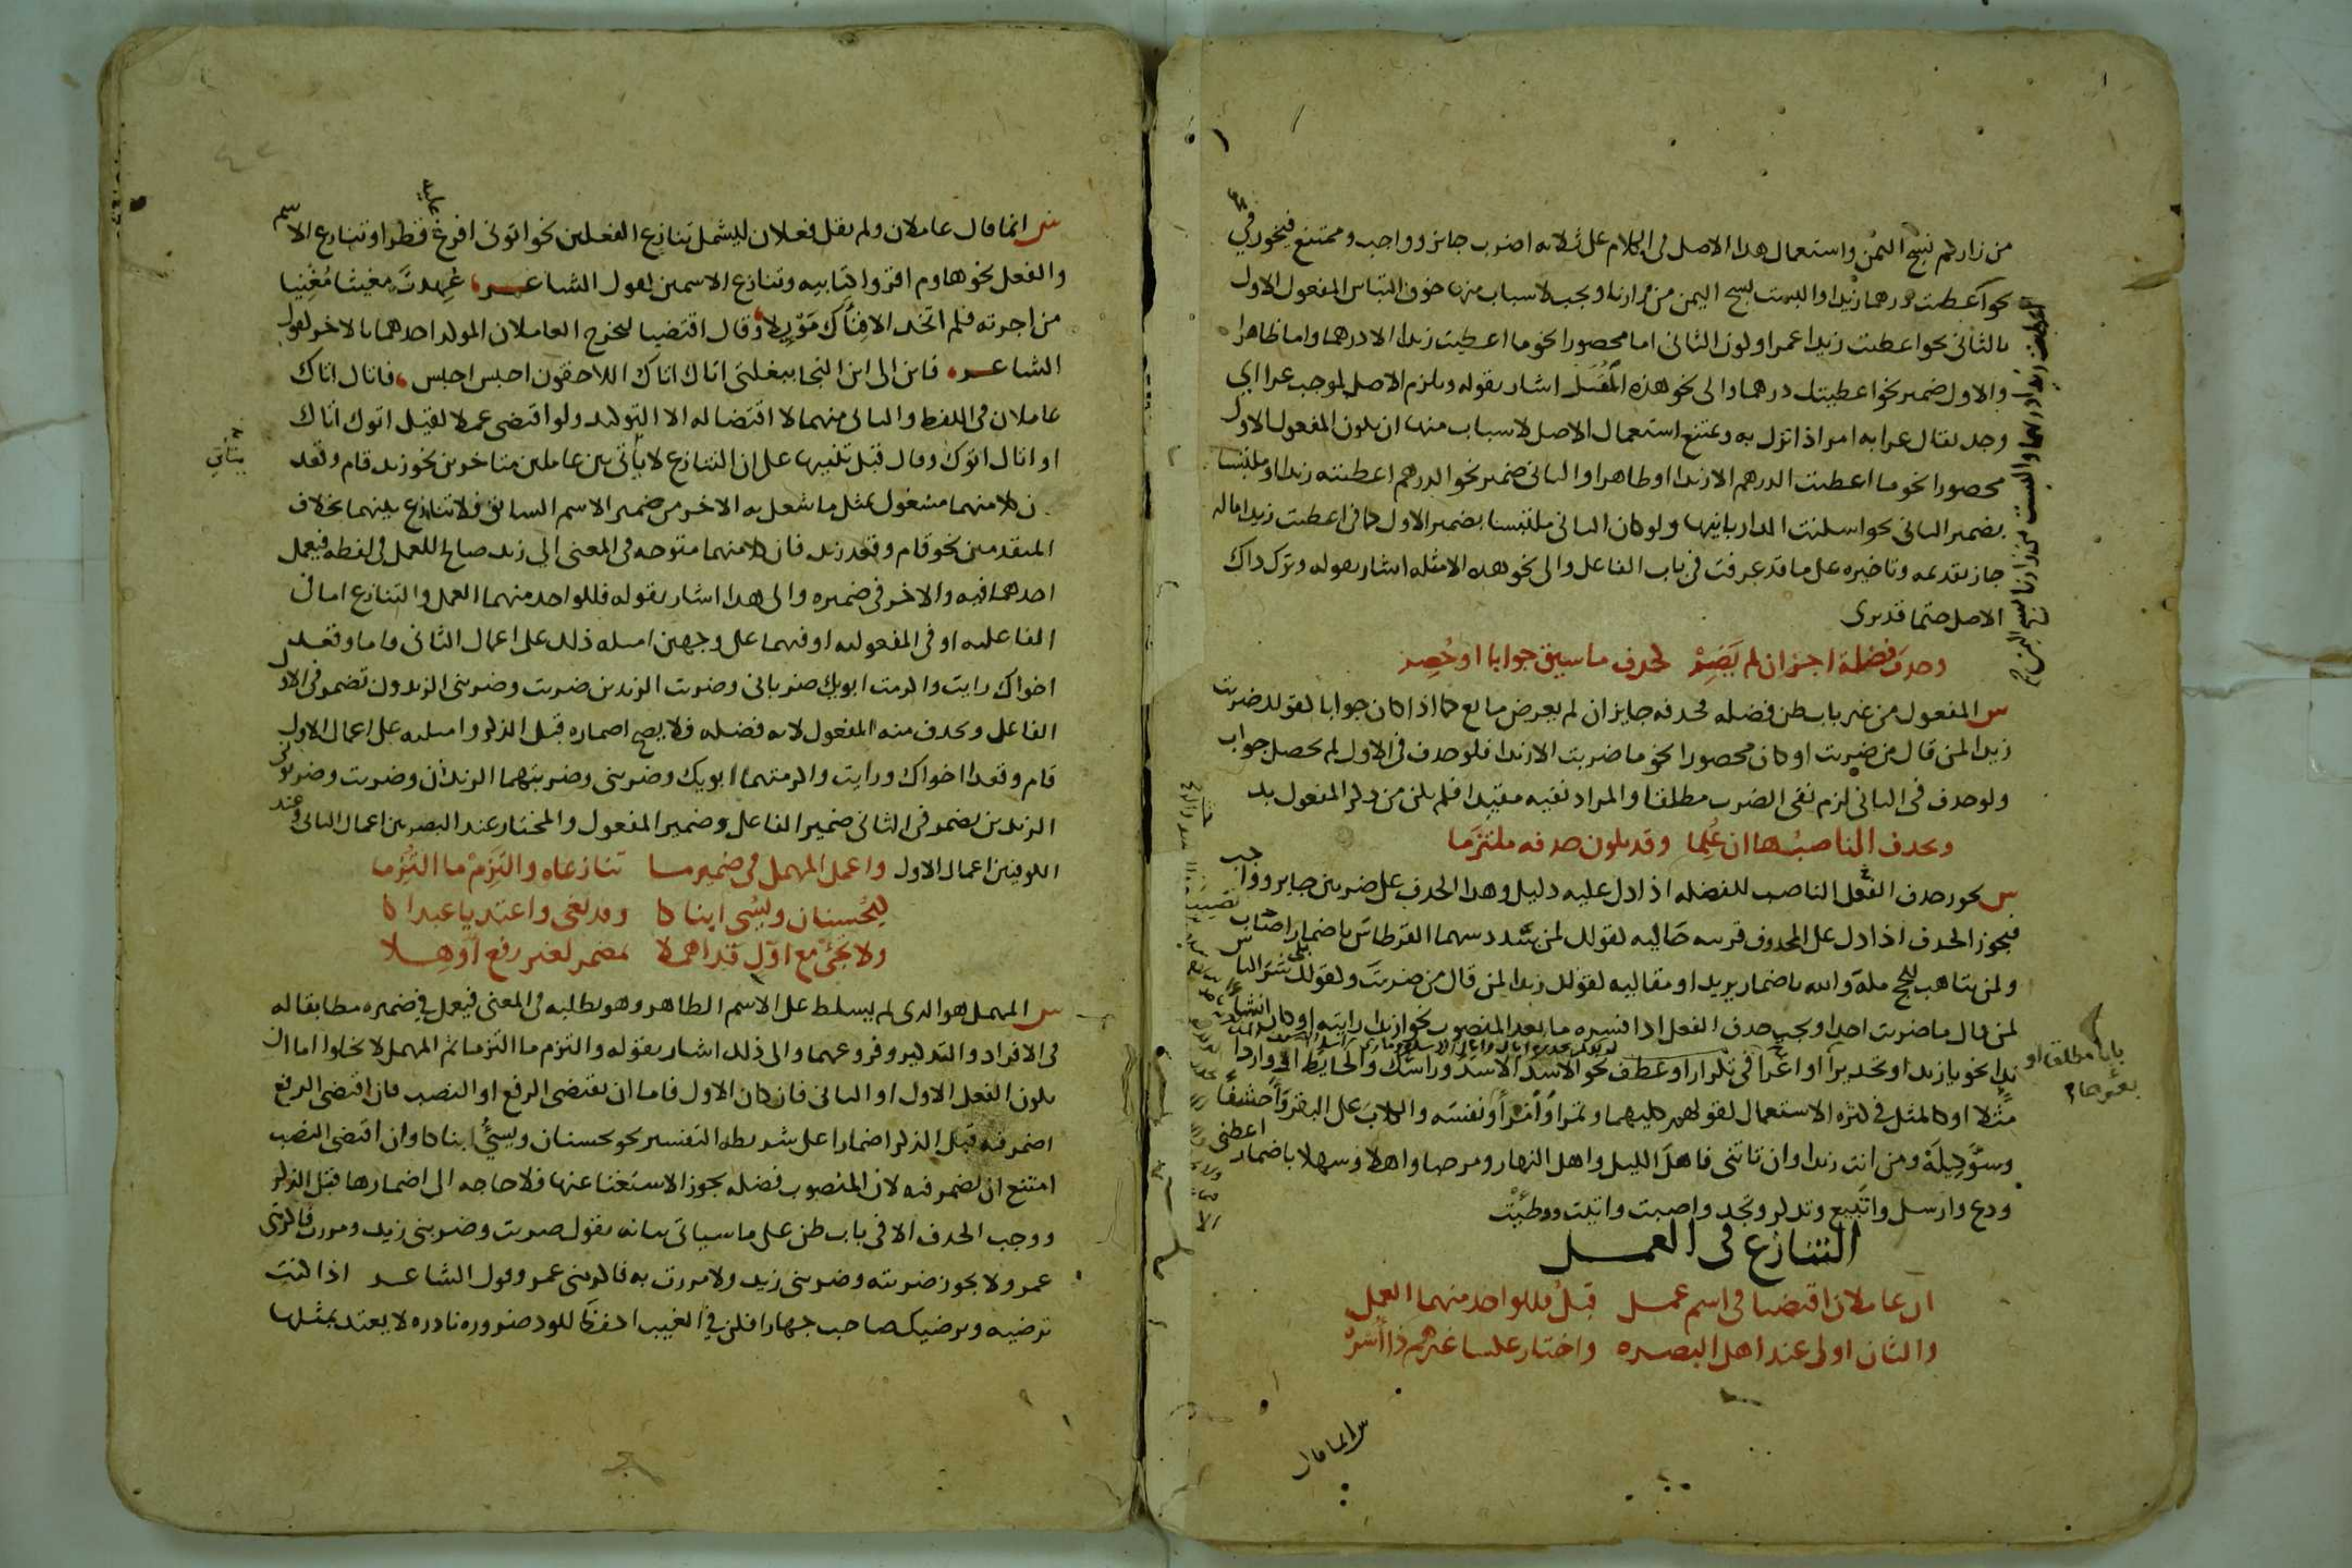 من زاركم نسج اليمن واستعمال هذا الاصل في الكلام على ثلاثه اضرب جايز وواجب وممتنع فيجوز في
نحو اعطيت درهما زيدا والبست نسج اليمن من زارنا ويجب لاسباب منها خوف التباس المفعول الاول
بالثاني نحو اعطيت زيدا عمرا وكون الثاني اما محصورا نحو ما اعطيت زيدا الا درهما واما ظاهرا
والاول ضمير نحو اعطيتك درهما والى نحو هذه المُثُل اشار بقوله ويلزم الاصل لموجب عرا اي
وجد يقال عرا به امر اذا نزل به ويمتنع استعمال الاصل لاسباب منها ان يكون المفعول الاول
محصورا نحو ما اعطيت الدرهم الا زيدا او ظاهرا والثاني ضمير نحو الدرهم اعطيته زيدا او ملتبسا
بضمير الثاني نحو اسكنت الدار بانيها ولو كان الثاني ملتبسا بضمير الاول كما في اعطيت زيدا ماله
جاز تقديمه وتاخيره على ما قد عرفت في باب الفاعل والى نحو هذه الامثله اشار بقوله وترك ذاك
الاصل حتما قد يرى
وحذف فضلة اجز ان لم يَضِرْ كحذف ما سيق جوابا او حُصِر
س المفعول من غير باب ظن فضله فحذفه جايز ان لم يعرض مانع كما اذا كان جوابا كقولك ضربت
زيدا لمن قال من ضربت او كان محصورا نحو ما ضربت الا زيدا فلو حذف في الاول لم يحصل جواب
ولو حذف في الثاني لزم نفي الضرب مطلقا والمراد نفيه مقيدا فلم يكن من ذكر المفعول بد
ويحذف الناصبُها ان عُلِما وقد يكون حذفه ملتزما
س يجوز حذف الفعل الناصب للفضله اذا دل عليه دليل وهذا الحذف على ضربين جايز وواجب
فيجوز الحذف اذا دل على المحذوف قرينه حاليه كقولك لمن سدد سهما القرطاس باضمار اصاب
ولمن يتاهب للحج مكة والله باضمار يريد او مقاليه كقولك زيدا لمن قال من ضربتَ وكقولك بلى شر الناس
لمن قال ما ضربت احدا ويجب حذف الفعل اذا فسره ما بعد المنصوب نحو ازيدا رايته او كان انشا
ندا نحو يا زيد او تحذيرا او اغرا في تكرار او عطف نحو الاسد الاسد وراسك والحايط او واردا
مثلا او كالمثل في كثره الاستعمال كقولهم كليهما وتمرا وامرأ ونفسه والكلاب على البقر واحشفا
وسو كيلة ومن انت زيدا وان تاتني فاهل الليل واهل النهار ومرحبا واهلا وسهلا باضمار اعطني
ودع وارسل واتبيع وتذكر وتجد واصبت واتيت ووطيت
التنازع في العمل
ان عاملان اقتضيا في اسم عمل قبلُ فللواحد منهما العمل
والثان اولى عند اهل البصره واختار عكسا غيرهم ذا اسره
س انما قال
س انما قال عاملان ولم يقل فعلان ليشمل تنازع الفعلين نحو اتوني افرغ عليه قطرا وتنازع الاسم
والفعل نحو هاوم اقرؤا كتابيه وتنازع الاسمين كقول الشاعر عُهدتَ مغيثا مُغْنِيا
من اجرته فلم اتخذ الا فِنَآك مَوْيِلا وقال اقتضيا ليخرج العاملان المولد احدهما بالاخر كقول
الشاعر فاين الى اين النجا ببغلتي اتاك اتاك اللاحقون احبس احبس فاتاك اتاك
عاملان في اللفظ والثاني منهما لا اقتضا له الا التوكيد ولو اقتضى عملا لقيل اتوك اتاك
او اتاك اتوك وقال قبل تنبيها على ان التنازع لا يأتي بين عاملين متاخرين نحو زيد قام وقعد
لان كلا منهما مشغول بمثل ما شغل به الاخر من ضمير الاسم السابق فلا تنازع بينهما بخلاف
المتقدمين نحو قام وقعد زيد فان كلا منهما متوجه في المعنى الى زيد صالح للعمل في لفظه فيعمل
احدهما فيه والاخر في ضميره والى هذا اشار بقوله فللواحد منهما العمل والتنازع اما في
الفاعليه او في المفعوليه او فيهما على وجهين امثله ذلك على اعمال الثاني قاما وقعد
اخواك رايت واكرمت ابويك ضرباني وضربت الزيدين ضربت وضربني الزيدون تضمر في الاول
الفاعل وتحذف منه المفعول لانه فضله فلا يصح اضماره قبل الذكر وامثلته على اعمال الاول
قام وقعدا اخواك ورايت واكرمتهما ابويك وضربني وضربتهما الزيدان وضربت وضربوني
الزيدين تضمر في الثاني ضمير الفاعل وضمير المفعول والمختار عند البصريين اعمال الثاني وعند
الكوفيين اعمال الاول واعمل المهمل في ضمير ما تنازعاه والتَزِمْ ما التُزِما
كيُحْسنان ويُسِي ابناكا وقد بغى واعتديا عبداكا
ولا تجئ مع اوّل قد اهملا بمضمر لغير رفع اُوهِلا
س المهمل هو الذي لم يسلط على الاسم الظاهر وهو يطلبه في المعنى فيعمل في ضميره مطابقا له
في الافراد والتذكير وفروعهما والى ذلك اشار بقوله والتزم ما التزما ثم المهمل لا يخلوا اما ان
يكون الفعل الاول او الثاني فان كان الاول فاما ان يقتضي الرفع او النصب فان اقتضى الرفع
اضمر فيه قبل الذكر اضمارا على شريطه التفسير نحو يحسنان ويسيُ ابناكا وان اقتضى النصب
امتنع ان يضمر فيه لان المنصوب فضله يجوز الاستغنا عنها فلا حاجه الى اضمارها قبل الذكر
ووجب الحذف الا في باب ظن على ما سياتي بيانه تقول ضربت وضربني زيد ومررت فاكرمني
عمرو ولا يجوز ضربته وضربني زيد ولا مررت به فاكرمني عمرو وقول الشاعر اذا كنت
ترضيه ويرضيك صاحب جهارا فكن في الغيب احفظ للود ضروره نادره لا يعتد بمثلها